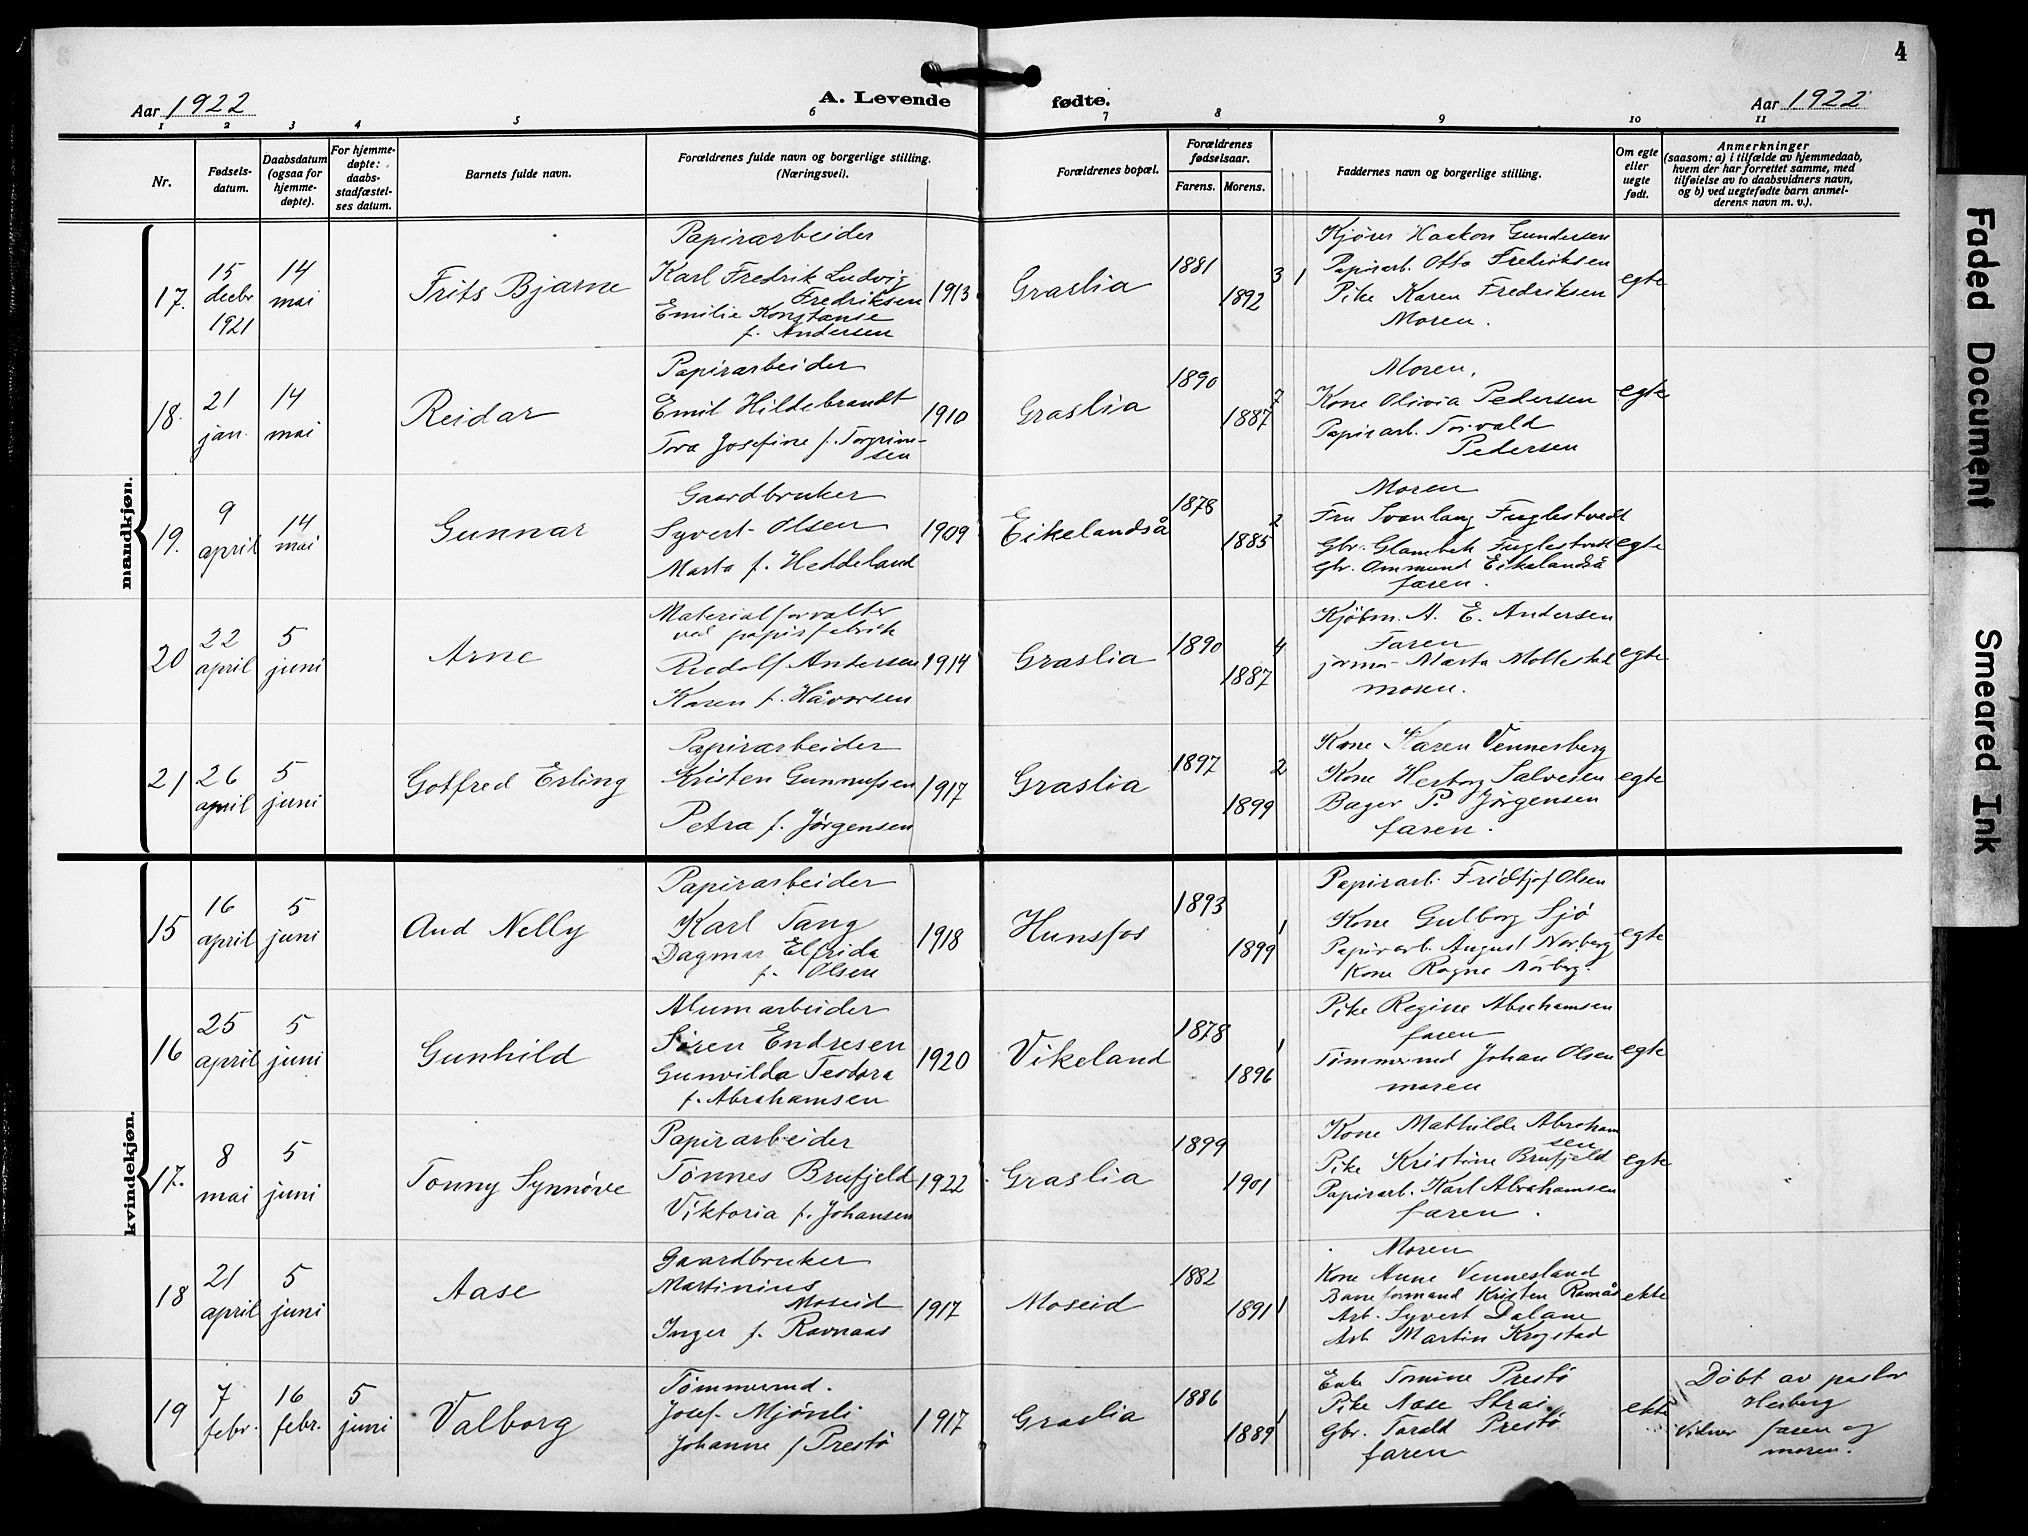 4
Aar 1922
A. Levende
fødte.
Aar 1922
1 2 3 4 5 6 7 8 9 10 11
Nr.
Fødsels-
datum.
Daabsdatum
(ogsaa for
hjemme-
døpte).
For hjemme-
døpte:
daabs-
stadfæstel-
ses datum.
Barnets fulde navn.
Forældrenes fulde navn og borgerlige stilling.
(Næringsvei).
Forældrenes bopæl.
Forældrenes
fødselsaar.
Farens. Morens.
Faddernes navn og borgerlige stilling.
Om egte
eller
uegte
født.
Anmerkninger
(saasom: a) i tilfælde av hjemmedaab,
hvem der har forrettet samme, med
tilføielse av to daabsvidners navn,
og b) ved uegtefødte barn anmel-
derens navn m. v.).
mandkjøn.
17.
15
decbr
1921
14
mai
Frits Bjarne
Papirarbeider
Karl Fredrik Ludvig
Fredriksen
Emilie Konstanse
f. Andersen
1913
Graslia
1881
1892
3 1
Kjører Haakon Gundersen
Papirarb. Otto Fredriksen
Pike Karen Fredriksen
Moren.
egte
18.
21
jan.
14
mai
Reidar
Papirarbeider
Emil Hildebrandt
Tora Josefine f. Torgrim-
sen
1910
Graslia
1890
1887
7
Moren,
Kone Olivia Pedersen
Papirarb. Torvald
Pedersen
egte
19.
9
april
14
mai
Gunnar
Gaardbruker
Syvert Olsen
Marta f. Heddeland
1909
Eikelandså
1878
1885
2
Moren
Fru Svanlaug Fuglestvedt
Gbr. Glambek Fuglestvedt
Gbr. Ommund Eikelandså
faren.
egte
20
22
april
5
juni
Arne
Materialforvalter
ved papirfabrik
Rudolf Andersen
Karen f. Håvorsen
1914
Graslia
1890
1887
4
Kjøbm. A. E. Andersen
Faren
jormor Marta Mollestad
moren.
egte
21
26
april
5
juni
Gotfred Erling
Papirarbeider
Kristen Gunnufsen
Petra f. Jørgensen
1917
Graslia
1897
1899
2
Kone Karen Vennesberg
Kone Herborg Salvesen
Bager P. Jørgensen
faren.
egte
kvindekjøn.
15
16
april
5
juni
Aud Nelly
Papirarbeider
Karl Tang
Dagmar Elfrida
f. Olsen
1918
Hunsfos
1893
1899
1
Papirarb. Fridtjof Olsen
Kone Gulborg Sjö
Papirarb. August Norberg
Kone Ragna Norberg.
egte
16
25
april
5
juni
Gunhild
Alumarbeider
Søren Endresen
Gunvilda Teodora
f. Abrahamsen
1920
Vikeland
1878
1896
1
Pike Regine Abrahamsen
faren
Tømmermd Johan Olsen
moren
egte
17.
8
mai
5
juni
Tonny Synnøve
Papirarbeider
Tønnes Brufjeld
Viktoria f. Johansen
1922
Graslia
1899
1901
Kone Mathilde Abraham
sen
Pike Kristine Brufjeld
Papirarb. Karl Abrahamsen
faren.
egte
18
21
april
5
juni
Aase
Gaardbruker
Martinius
Moseid
Inger f. Ravnaas
1917
Moseid
1882
1891
1
Moren
Kone Anne Vennesland
Baneformand Kristen Ravnås
Arb. Syvert Dalane
Arb Martin Krogstad
ekte
19
7
febr.
16
febr.
5
juni
Valborg
Tømmermd.
Josef Mjönli
Johanne f Prestö
1917
Graslia
1886
1889
1
Enke Tomine Prestö
Pike Aase Strai
Gbr. Torald Prestö
faren
ekte
Döbt av pastor
Hesberg
Vidner faren og
moren.
Faded Document
Smeared Ink